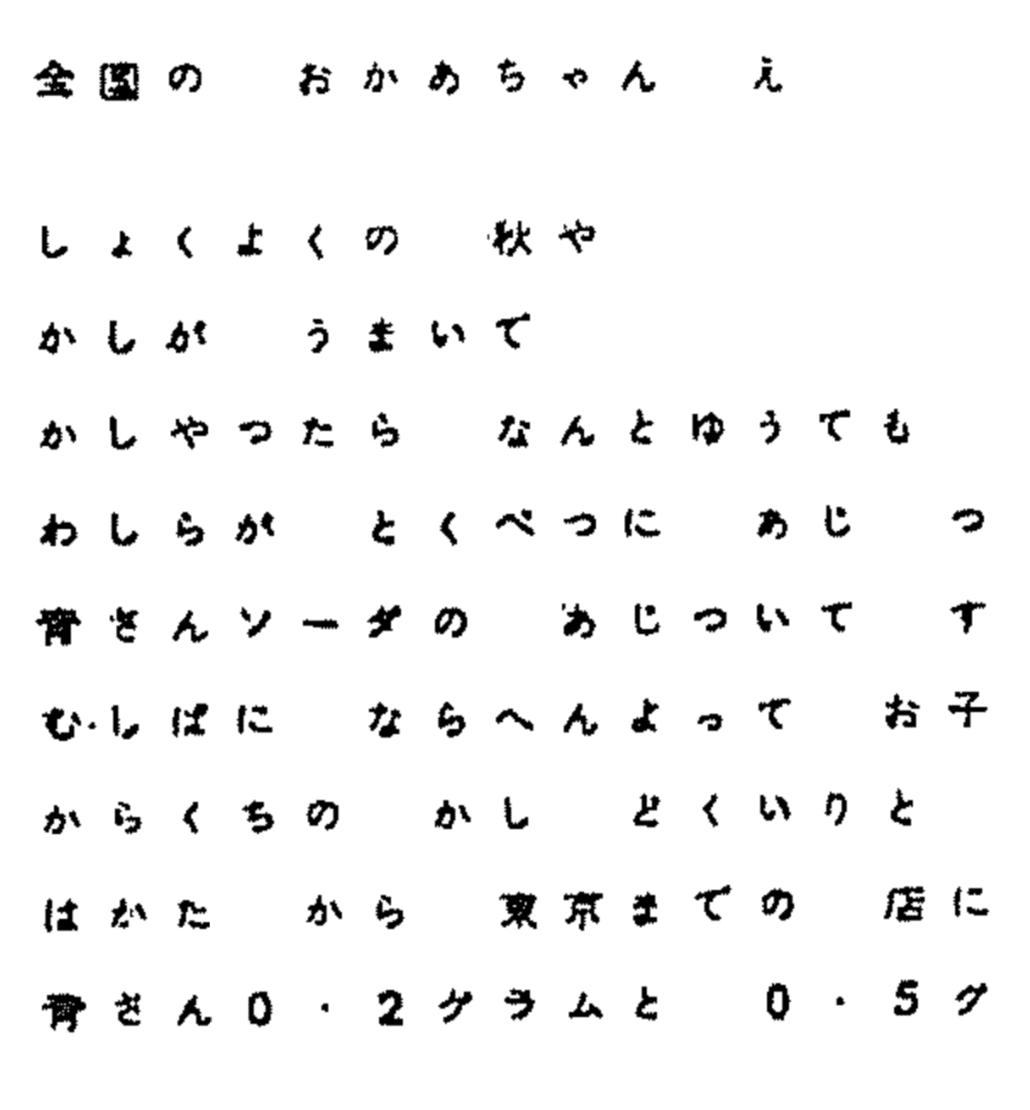 全国の　おかあちゃん　え
しょくよくの　秋や
かしが　うまいで
かしやつたら　なんとゆうても
わしらが　とくべつに　あじ　つ
青さんソーダの　あじついて　す
むしばに　ならへんよって　お子
からくちの　かし　どくいりと
はかた　から　東京までの　店に
青さん0.2グラムと　0.5グ